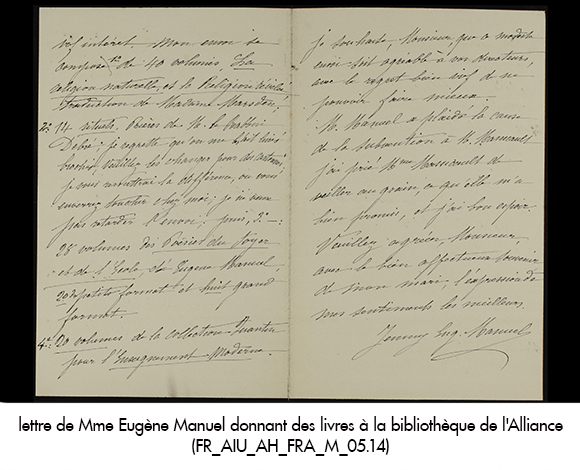 vif intérêt. Mon envoi se
compose 1º de 40 volumes, La
religion naturelle, et la Religion révélée
traduction de Madame
2º 14 rituels. Prières de M. le Rabbin
; je regrette qu'on me
brochés, veuillez les changer pour des
je vous la différence, ou vous
enverrez toucher chez moi; je ne veux
pas retarder l'envoi; puis, 3º —:
28 volumes des Poésies du Foyer
et de l'Ecole, d'Eugène Manuel,
20 de petits format et huit grand
format.
4º 20 volumes de la collection Quantin
pour l'Enseignement Moderne.
je souhaite, Monsieur, que ce modeste
envoi soit agréable à vos directeurs,
avec le regret bien vif de ne
pouvoir faire mieux.
M. Manuel a plaidé la cause
de la subvention à M.
j'ai prié Mme de
veiller au grain, ce qu'elle m'a
bien promis, et j'ai bon espoir.
Veuillez agréer, Monsieur,
avec le bien affectueux souvenir
de mon mari, l'expression de
mes sentiments les meilleurs.
Jenny Eug. Manuel
lettre de Mme Eugène Manuel donnant des livres à la bibliothèque de l'Alliance
(FR_AIU_AH_FRA_M_05.14)